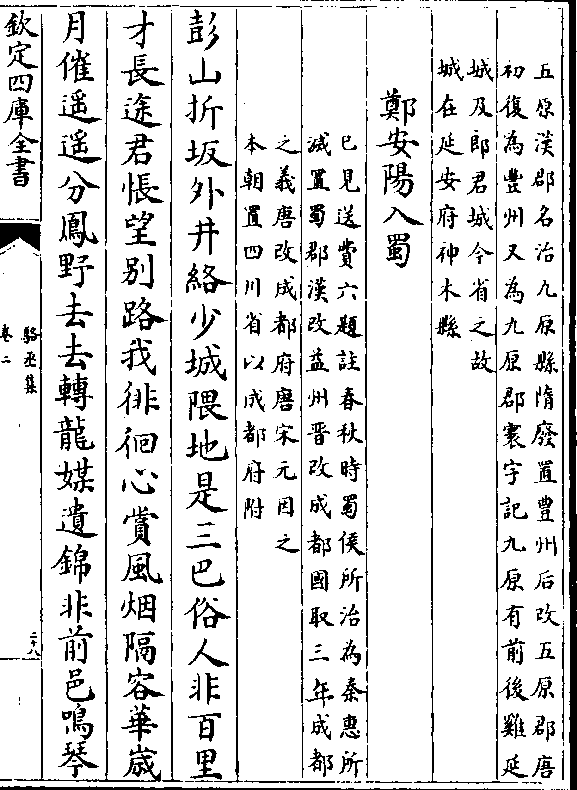 五原漢郡名治九原縣隋廢置豐州后改五原郡唐
初復為豐州又為九原郡寰宇記九原有前後難延
城及郎君城今省之故
城在延安府神木縣
鄭安陽入蜀
已見送費六題註春秋時蜀侯所治為秦惠所
滅置蜀郡漢改益州晋改成都國取三年成都
之義唐改成都府唐宋元因之
本朝置四川省以成都府附
彭山折坂外井絡少城隈地是三巴俗人非百里
才長途君悵望别路我徘徊心賞風烟隔容華歲
月催遥遥分鳳野去去轉龍媒遺錦非前邑鳴琴
欽定四庫全書
駱丞集
卷二
二十八